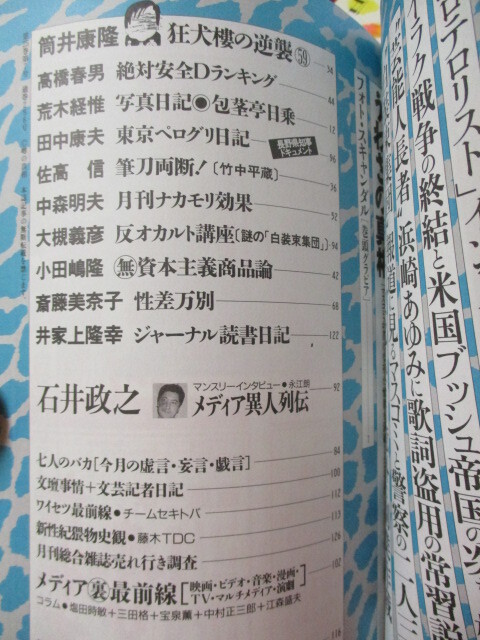 筒井康隆 狂犬樓の逆襲 59 34
高橋春男 絶対安全Dランキング 44
荒木経惟 写真日記●包茎亭日乗 12
田中康夫 東京ペログリ日記 長野県知事ドキュメント 96
佐高 信 筆刀両断!〔竹中平蔵〕 36
中森明夫 月刊ナカモリ効果 92
大槻義彦 反オカルト講座〔謎の「白装束集団」〕 94
小田嶋隆 無資本主義商品論 42
斎藤美奈子 性差万別 68
井家上隆幸 ジャーナル読書日記 122
石井政之 マンスリーインタビュー●永江朗 92
メディア異人列伝
七人のバカ[今月の虚言・妄言・戯言] 84
文壇事情+文芸記者日記 100
ワイセツ最前線●チームセキトバ 112
新性紀猥物史観●藤木TDC 113
月刊総合雑誌売れ行き調査
メディア裏最前線[映画・ビデオ・音楽・漫画・TV・マルチメディア・演劇] 102
コラム●塩田時敏+三田格+宝泉薫+中村正三郎+江森盛夫
フォト・スキャンダル
ロテロリスト」
イラク戦争の終結と米国ブッシュ帝国の
"芸能人長者"浜崎あゆみに歌詞盗用の常習説
見るマスコミと警察の